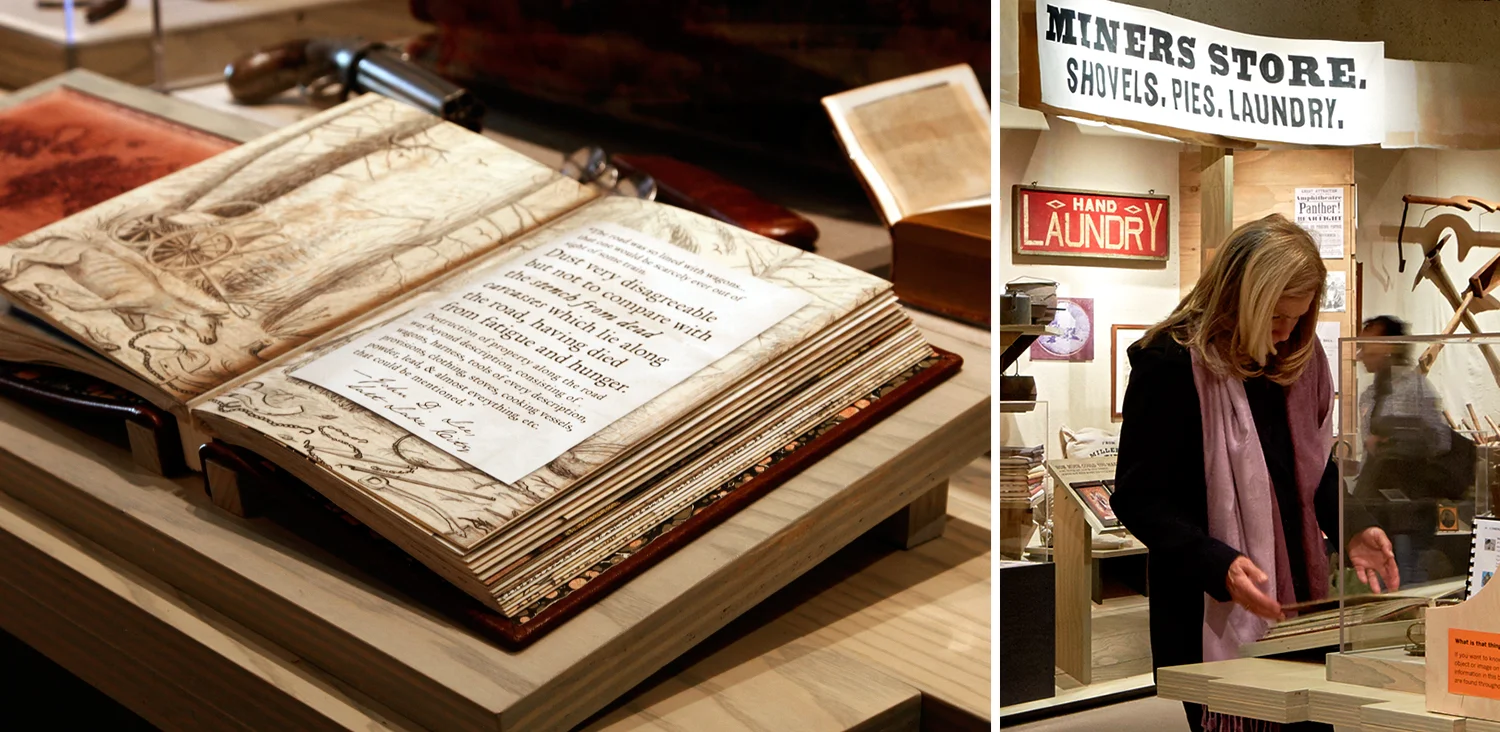 "The road was so lined with wagons,
that one would be scarcely ever out of
sight of some train.
Dust very disagreeable
but not to compare with
the stench from dead
carcasses which lie along
the road, having died
from fatigue and hunger.
Destruction of property along the road
was beyond description, consisting of
wagons, harness, tools of every description,
provisions, clothing, stoves, cooking vessels,
powder, lead, & almost everything, etc.
that could be mentioned."
—John D. Lee,
Salt Lake City
MINERS STORE.
SHOVELS. PIES. LAUNDRY.
HAND
LAUNDRY
Amphitheatre
Panther!
FROM
MILLER
What is that thing
If you want to know
object or image on
information in this
are found throughout